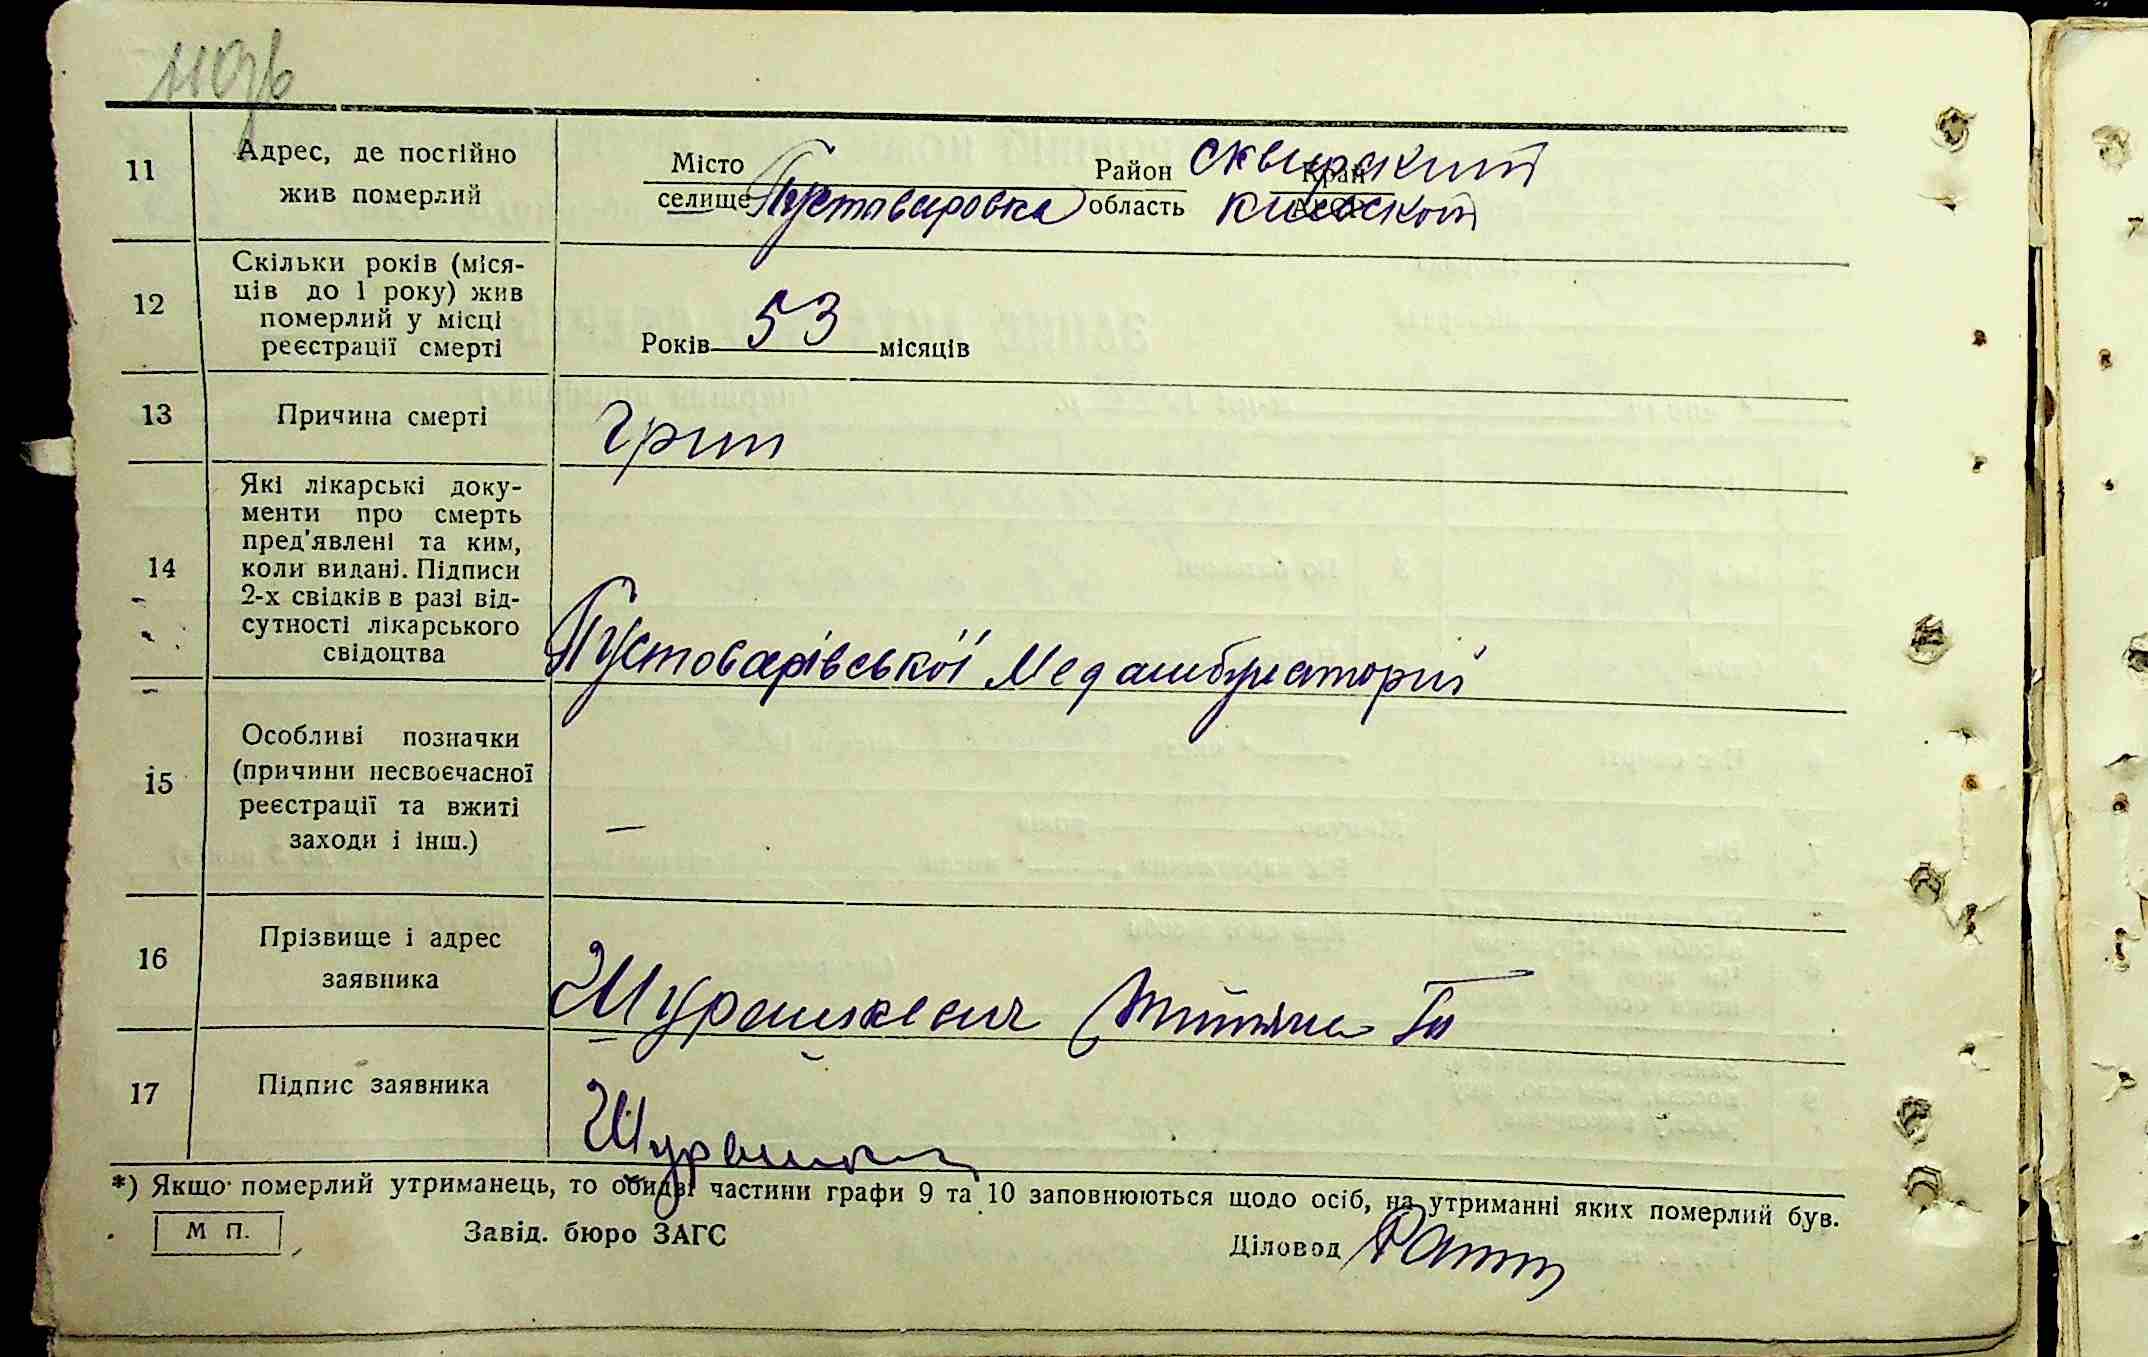 110 зв
11 Адрес, де постійно жив померлий
Місто селище Пустоваровка Район область Сквирский Киевской Край АРСР
12 Скільки років (міся-
ців до 1 року) жив
померлий у місці
реєстрації смерті
Років 53 місяців
13 Причина смерті Грип
14 Які лікарські доку-
менти про смерть
пред'явлені та ким,
коли видані. Підписи
2-х свідків в разі від-
сутності лікарського
свідоцтва
Пустоварівської Медамбулаторий
15 Особливі позначки
(причини несвоєчасної
реєстрації та вжиті
заходи і інш.)
—
16 Прізвище і адрес
заявника
17 Підпис заявника
*) Якщо померлий утриманець, то обидві частини графи 9 та 10 заповнюються щодо осіб, на утриманні яких померлий був.
М П. Завід. бюро ЗАГС Діловод